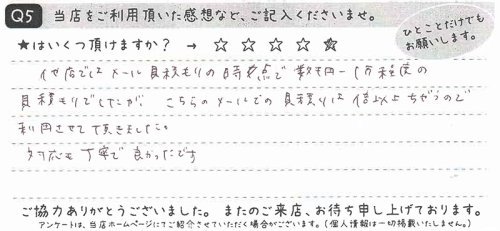 Q5 当店をご利用頂いた感想など、ご記入くださいませ。
★はいくつ頂けますか? → ☆ ☆ ☆ ☆ ☆
ひとことだけでも
お願いします。
他店ではメール見積もりの時点で数千円~1万程度の
見積もりでしたが、こちらのメールでの見積りは倍以上ちがうので
利用させて頂きました。
対応も丁寧で良かったです
ご協力ありがとうございました。またのご来店、お待ち申し上げております。
アンケートは、当店ホームページにてご紹介させていただく場合がございます。(個人情報は一切掲載いたしません。)